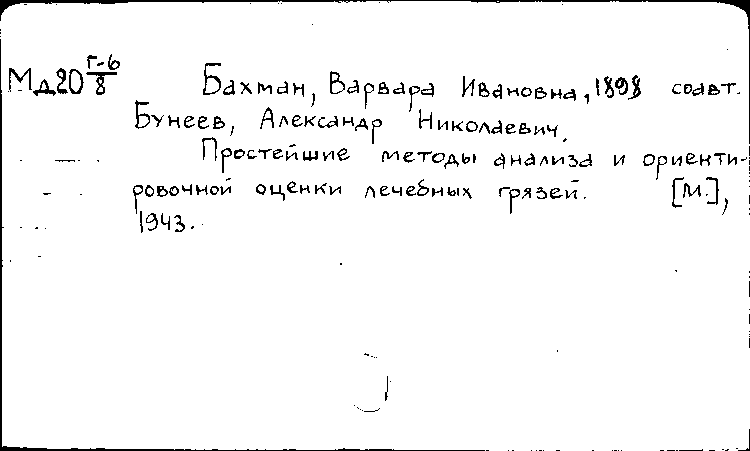 Мд20 Г-6/8 Бахман, Варвара Ивановна, 1898 соавт.
Бунеев, Александр Николаевич.
Простейшие методы анализа и ориенти-
ровочной оценки лечебных грязей. [М.],
1943.